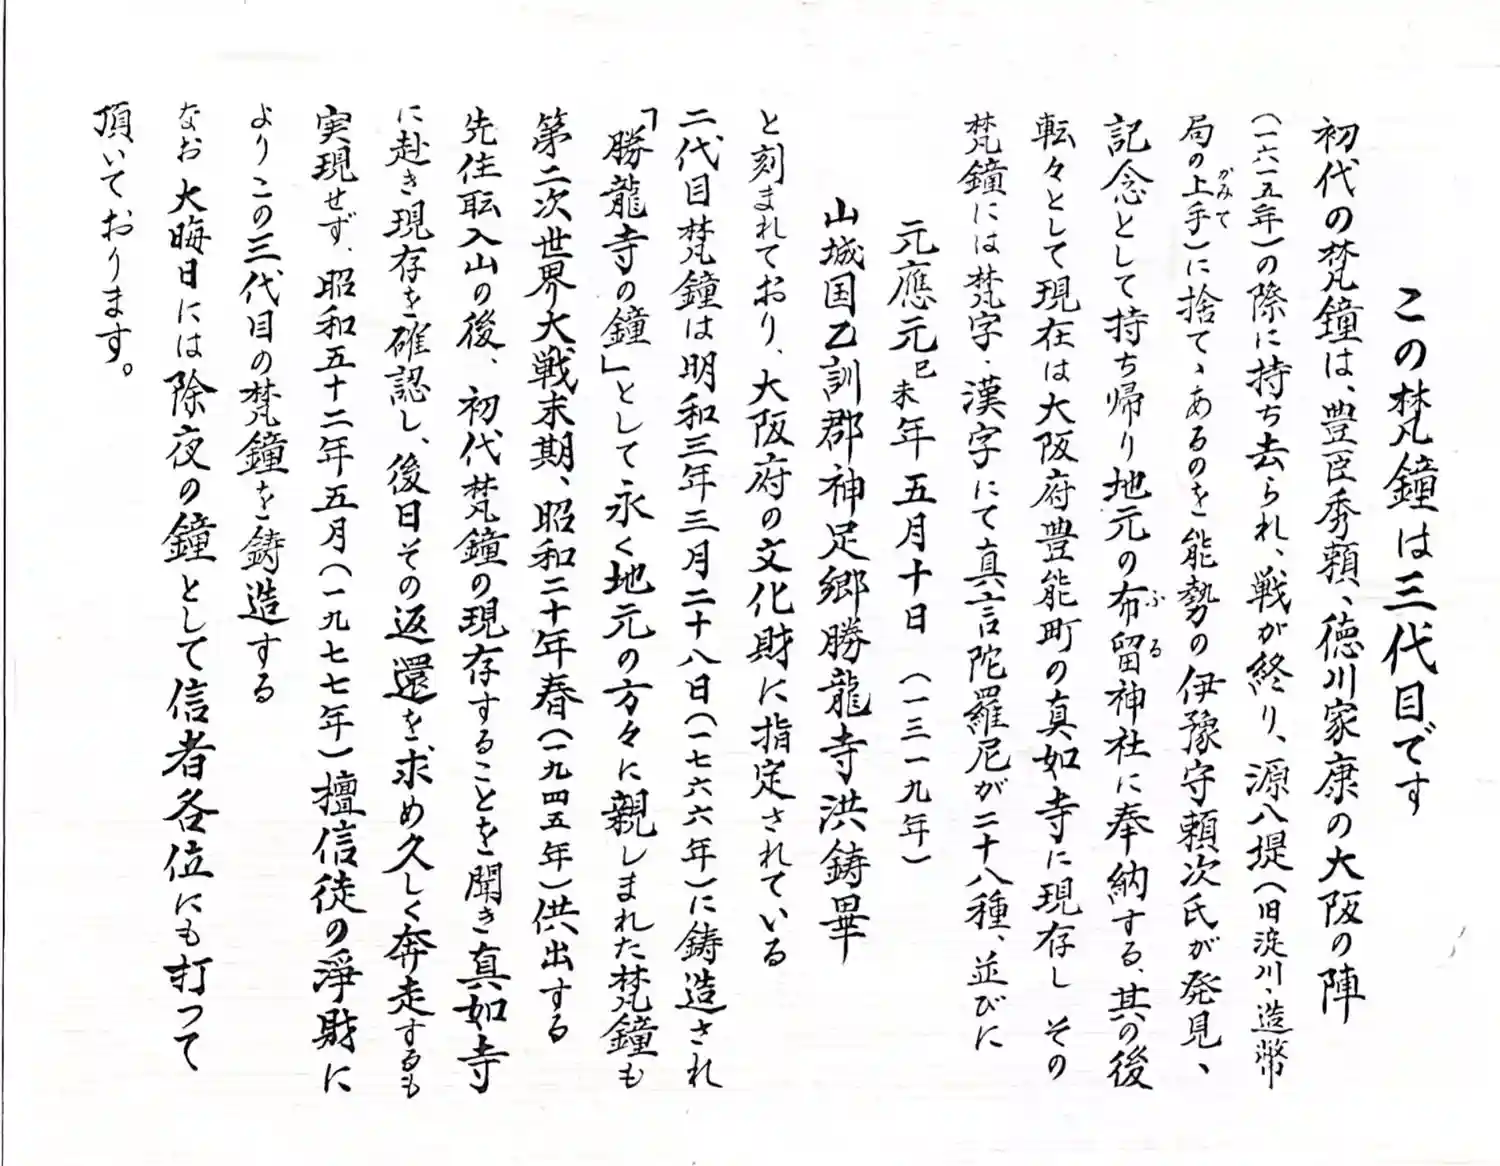 この梵鐘は三代目です
初代の梵鐘は、豊臣秀頼、徳川家康の大阪の陣
(一六一五年)の際に持ち去られ、戦が終り、源八堤(旧淀川、造幣
局の上手)に捨てゝあるのを能勢の伊豫守頼次氏が発見、
がみて
記念として持ち帰り地元の布留神社に奉納する、其の後
ふる
転々として現在は大阪府豊能町の真如寺に現存し その
梵鐘には梵字、漢字にて真言陀羅尼が二十八種、並びに
元應元己未年 五月十日 (一三一九年)
山城国乙訓郡神足郷勝龍寺洪鋳畢
と刻まれており、大阪府の文化財に指定されている
二代目梵鐘は明和三年三月二十八日(一七六六年)に鋳造され
「勝龍寺の鐘」として永く地元の方々に親しまれた梵鐘も
第二次世界大戦末期、昭和二十年春(一九四五年)供出する
先住耘入山の後、初代梵鐘の現存することを聞き真如寺
に赴き現存を確認し、後日その返還を求め久しく奔走するも
実現せず、昭和五十二年五月(一九七七年)檀信徒の淨財に
よりこの三代目の梵鐘を鋳造する
なお 大晦日には除夜の鐘として信者各位にも打って
頂いております。